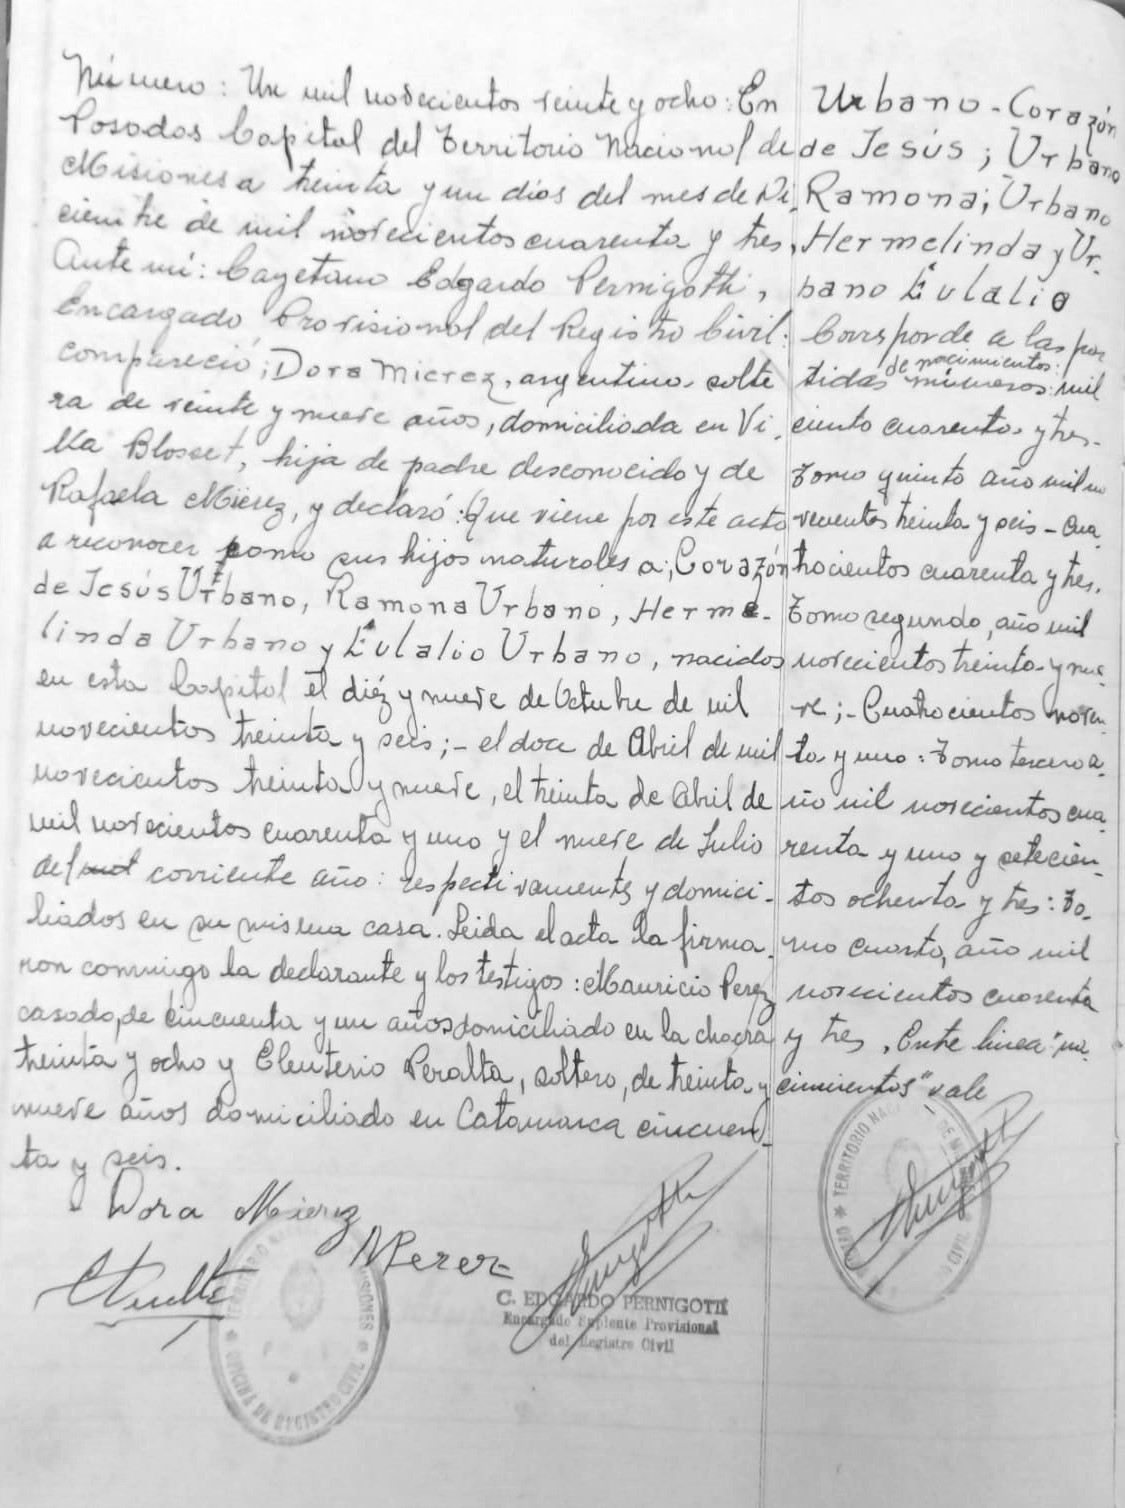 Número: Un mil novecientos veinte y ocho: En
Posadas Capital del Territorio Nacional de
Misiones a treinta y un días del mes de Di-
ciembre de mil novecientos cuarenta y tres,
Ante mí: Cayetano Edgardo Pernigotti,
Encargado Provisional del Registro Civil:
compareció; Dora Mierez, argentina, solte
ra de veinte y nueve años, domiciliada en Vi-
lla Blosset, hija de padre desconocido y de
Rafaela Mierez, y declaró: Que viene por este acto
a reconocer como sus hijos naturales a; Corazón
de Jesús Urbano, Ramona Urbano, Herme-
linda Urbano y Eulalio Urbano, nacidos
en esta Capital el diéz y nueve de Octubre de mil
novecientos treinta y seis;- el doce de Abril de mil
novecientos treinta y nueve, el treinta de Abril de
mil novecientos cuarenta y uno y el nueve de Julio
del corriente año: respectivamente, y domici-
liados en su misma casa. Leida el acta la firma-
ron conmigo la declarante y los testigos: Mauricio Perez
casado, de cincuenta y un años domiciliado en la chacra
treinta y ocho y Eleuterio Peralta, soltero, de treinta y
nueve años domiciliado en Catamarca cincuen-
ta y seis.
Dora Mierez
MPerez
C. EDGARDO PERNIGOTTI
Encargado Suplente Provisional
del Registro Civil
TERRITORIO NAC MISIONES
OFICINA DE REGISTRO CIVIL
Urbano - Corazón
de Jesús; Urbano
Ramona; Urbano
Hermelinda y Ur-
bano Eulalio
Corresponde a las par
de nacimientos:
tidas números: mil
ciento cuarenta y tres-
Tomo quinto año mil no
vecientos treinta y seis - Cua-
trocientos cuarenta y tres.
Tomo segundo, año mil
novecientos treinta y nue-
ve;- Cuatrocientos noven-
ta y uno: Tomo tercero a-
ño mil novecientos cua-
renta y uno y setecien-
tos ochenta y tres: To-
mo cuarto, año mil
novecientos cuarenta
y tres, Entre linea "na-
cimientos" vale
TERRITORIO NAC DE M
CIVIL